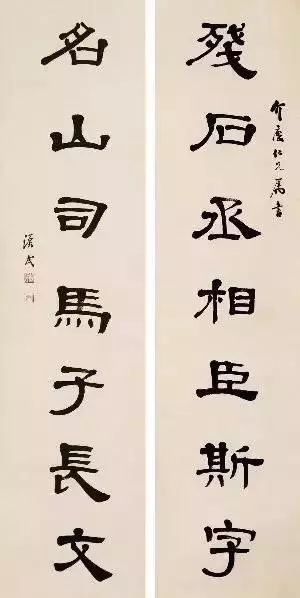 殘石丞相臣斯字
介仁兄属書
名山司馬子長文
漢民